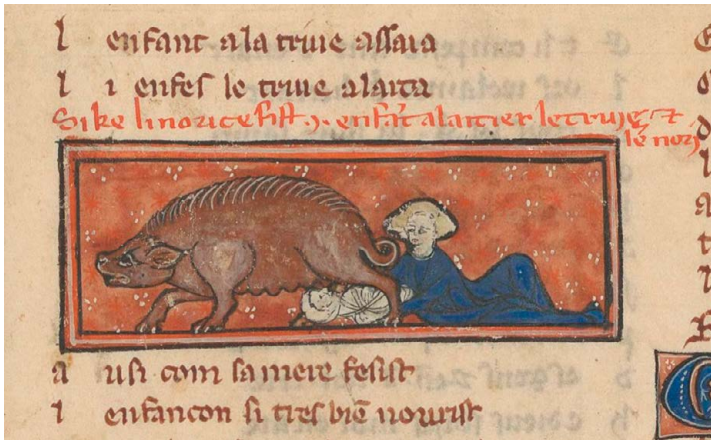 l enfant a la truie assaia
l i enfes le truie alaita
Si ke li norice fist .j. enfāt alaitier le truie et
le nori
a usi com sa mere fesist
l enfancon si tres biē nourist